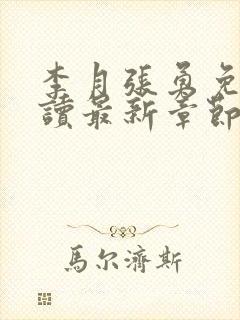 李月張勇免
讀最新章節
馬尔濟斯